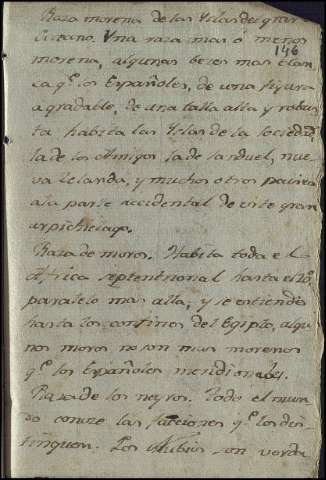 Raza morena de las Yslas del gran
Oceano. Una raza mas ó menos
146
morena, algunas beces mas blan
ca q.e los Españoles, de una figura
agradable, de una talla alta y robus
ta habita las Yslas de la Sociedad,
la de los Amigos la de Sanduel, nue
va Zelanda, y muchos otros paises
ala parte accidental de este gran
arpichelago.
Raza de moros. Habita toda el
Africa septentrional hasta el 20
paralelo mas alla, y se estiende
hasta los confines del Egipto, algu
nos moros no son mas morenos
q.e los Españoles meridionales.
Raza de los negros. Todo el mun
do conoce las facciones q.e los dis-
tinguen. Los Nubios son verda